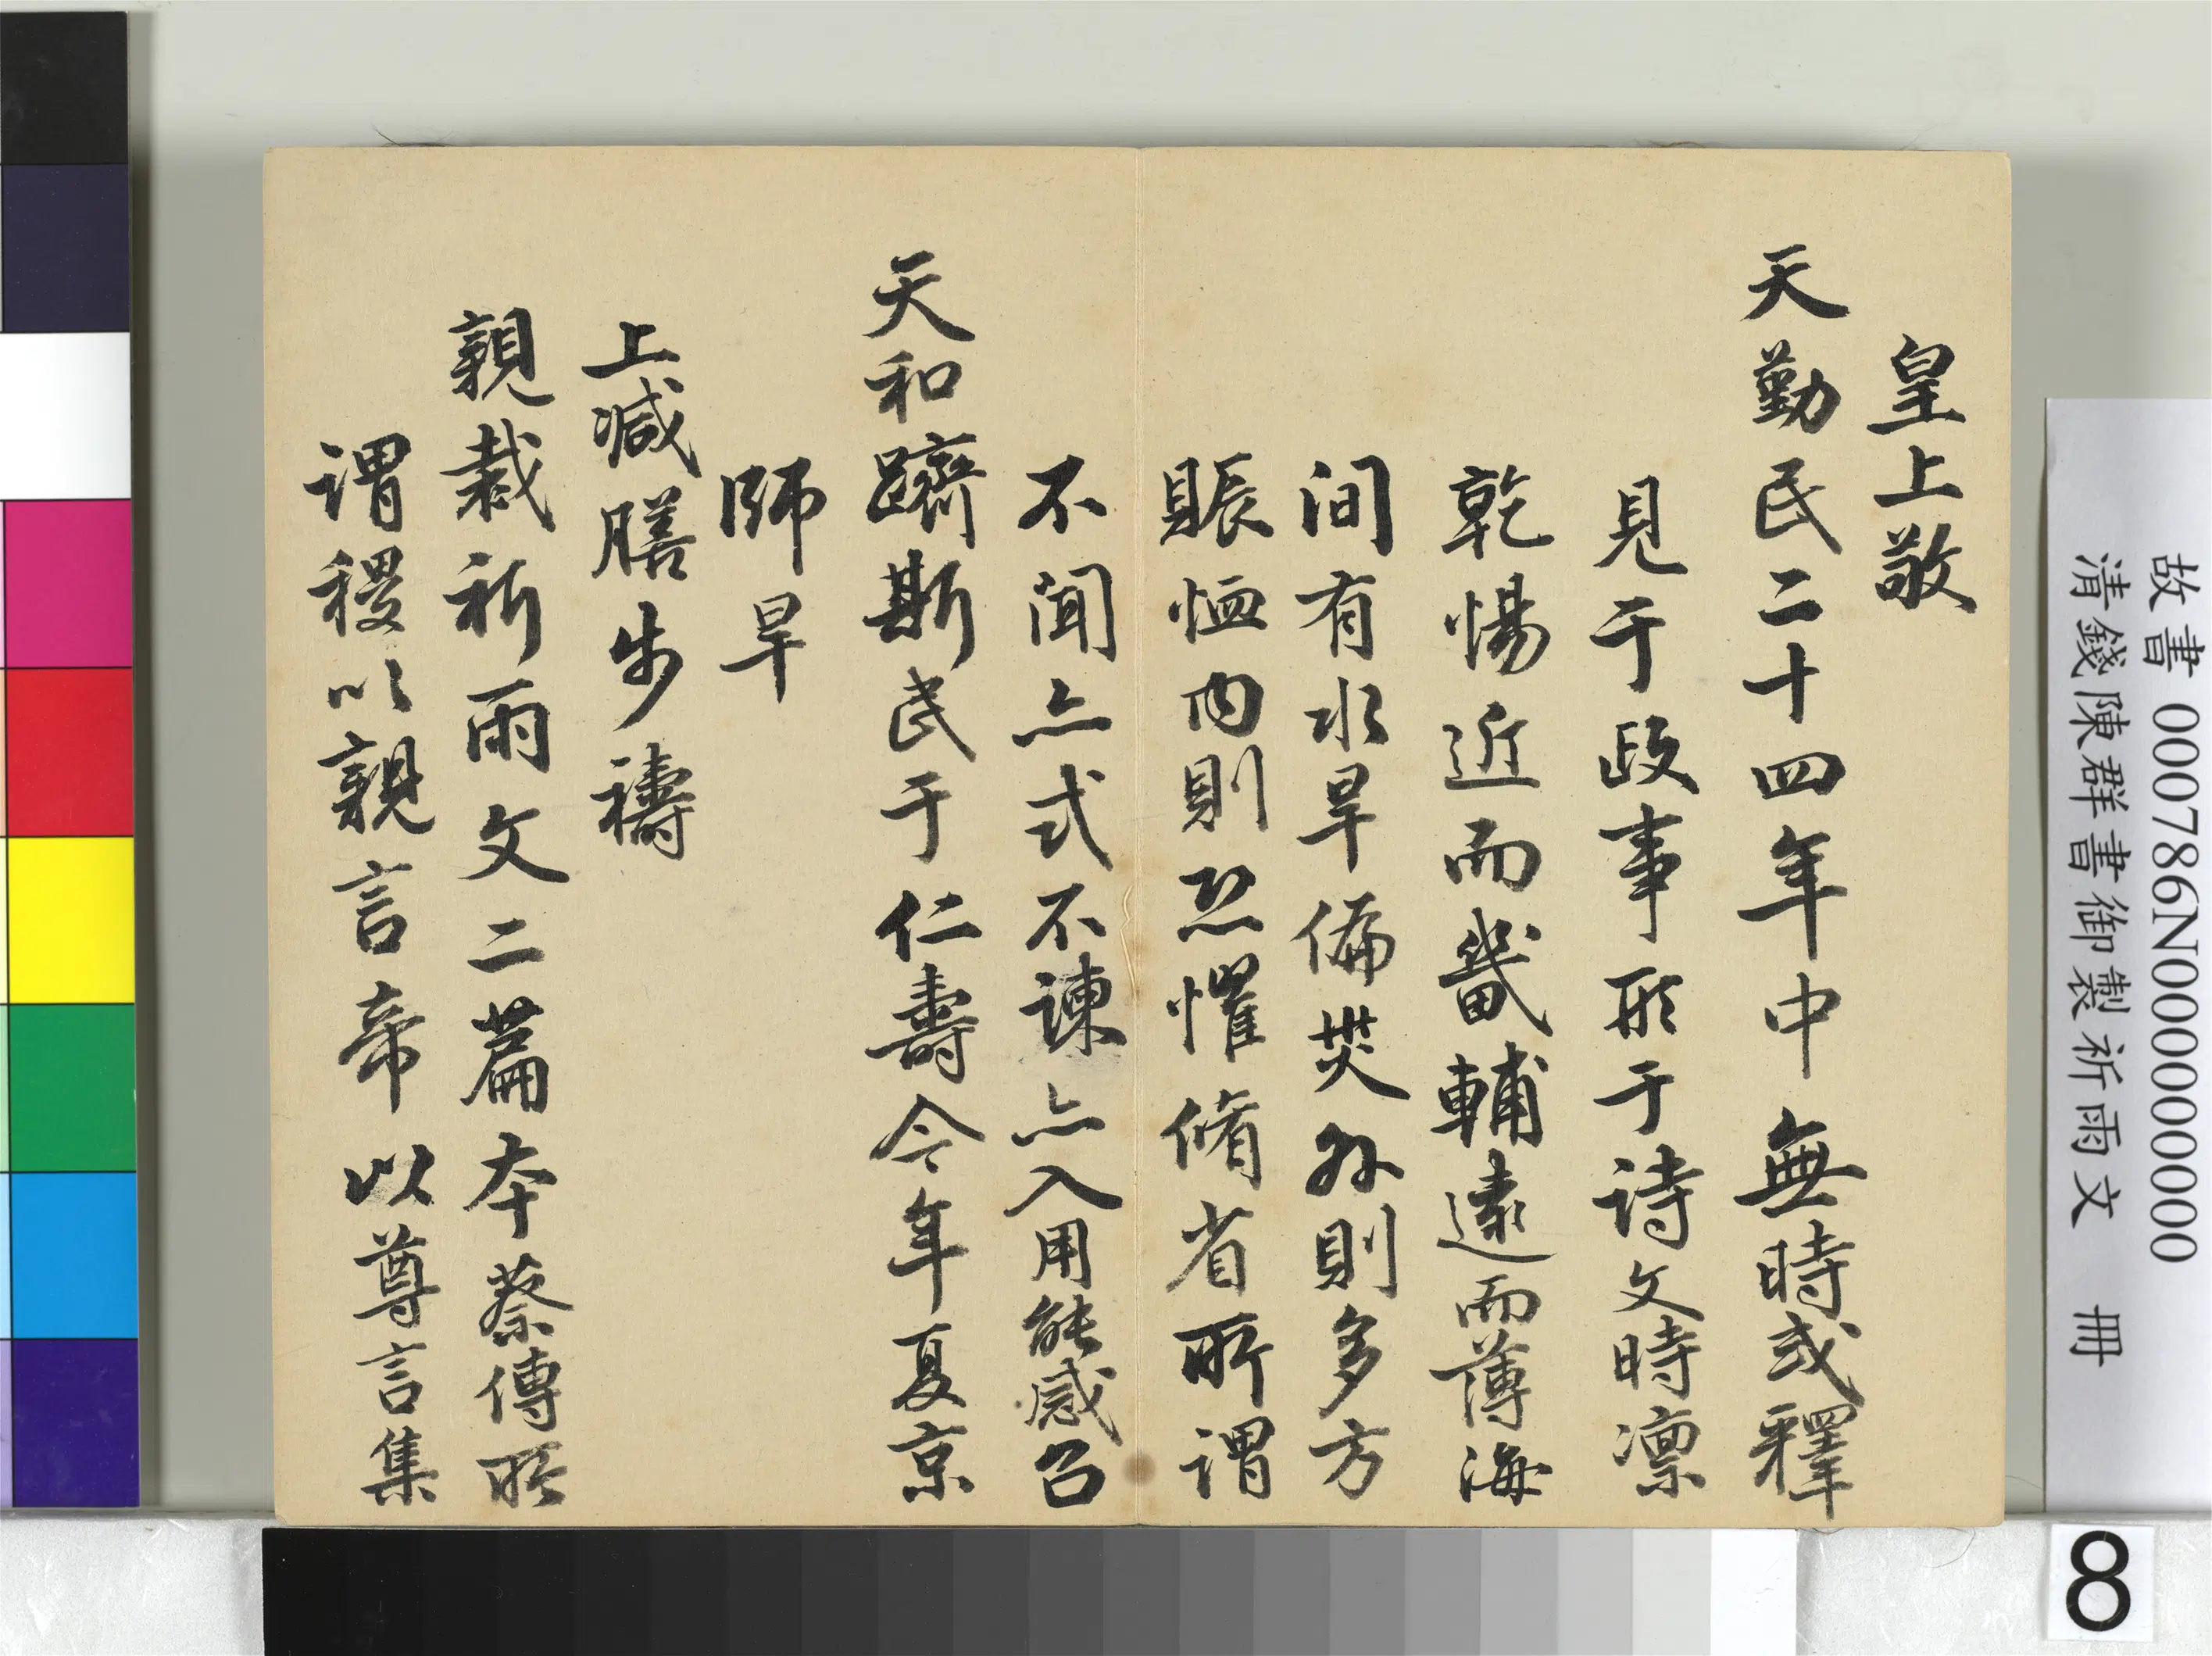 皇上敬
天勤民二十四年中無時或釋
見于政事形于詩文時凛
乾惕近而畿輔遠而薄海
间有水旱偏災外則多方
賑恤内則恐懼脩省所謂
不聞亦式不諫亦入用能感召
天和躋斯民于仁壽今年夏京
師旱
上减膳步禱
親裁祈雨文二篇本蔡傳所
謂稷以親言帝以尊言集
故書 000786N000000000
清錢陳群書御製祈雨文 冊
8